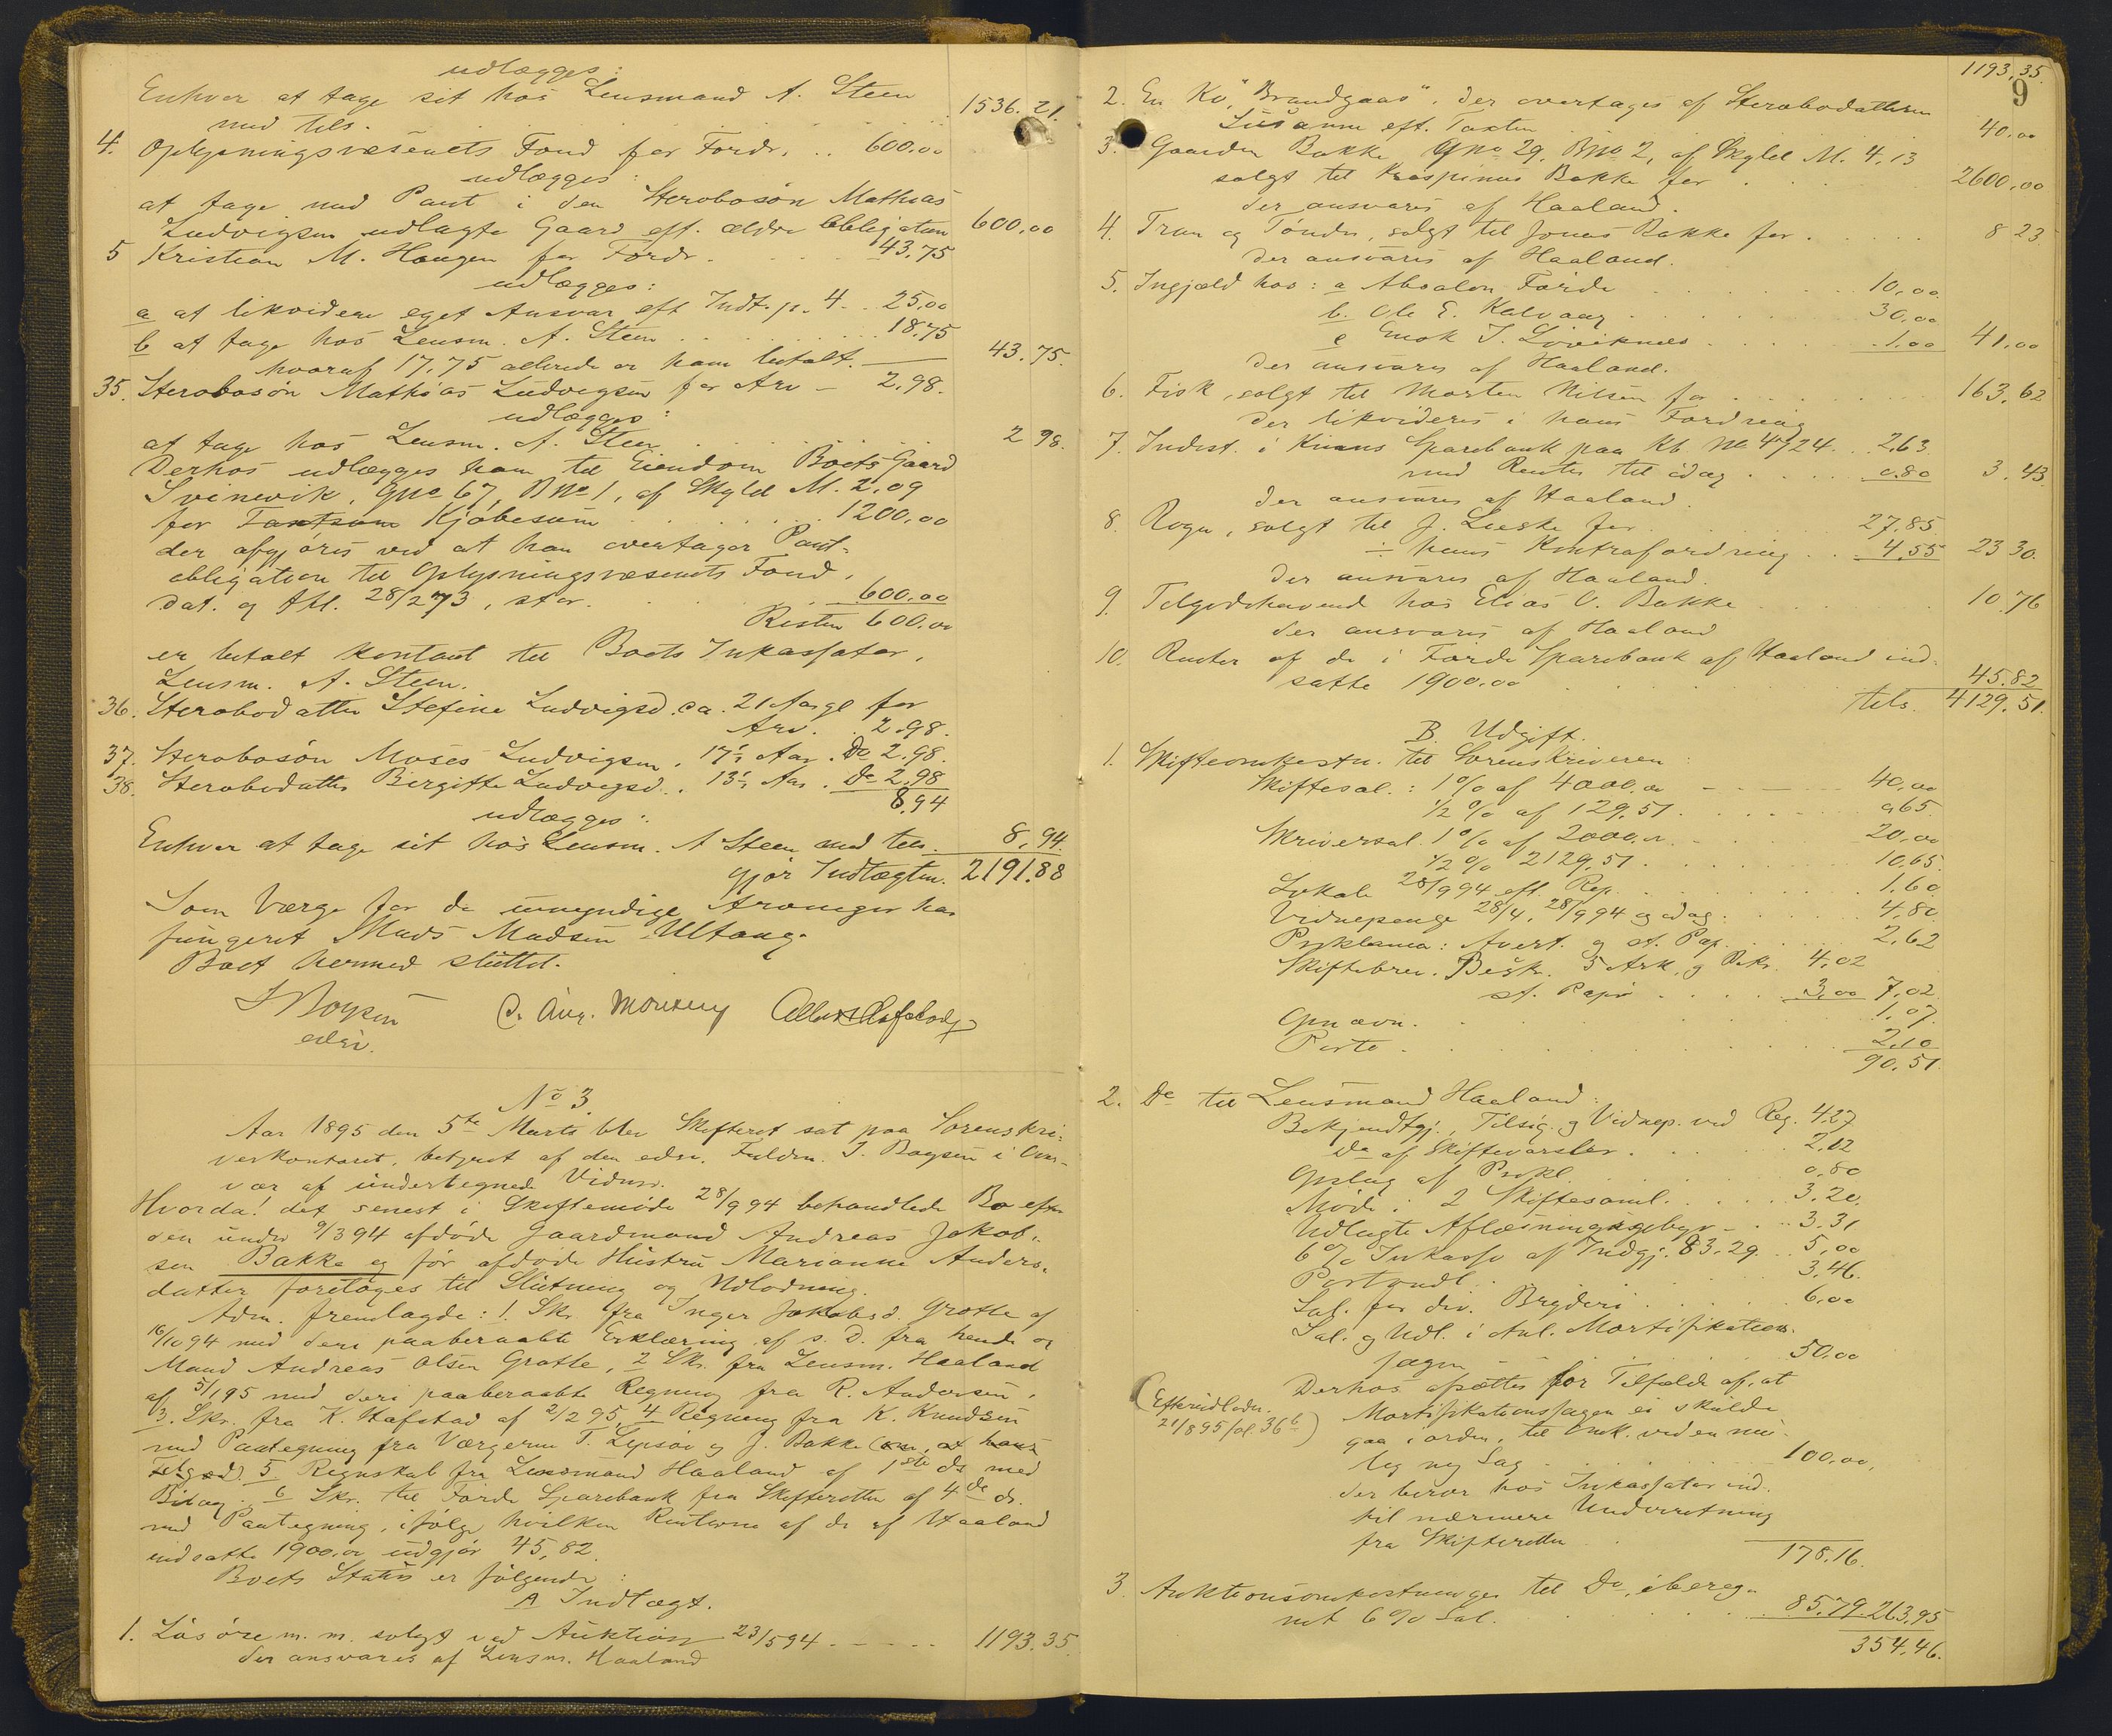 udlægges:
Enhver at tage sit hos Lensmand A. Steen
med tils. 1536.21.
4. Oplysningsvæsenets Fond for Fordr. .. 600.00
udlægges:
at tage med Pant i den Sterbosøn Mathias
Ludvigsen udlagte Gaard eft. ældre Obligation 600,00
5 Kristian M. Haugen for Fordr. 43,75
udlægges:
a at likvidere eget Ansvar eft Indt. p. 4 .. 25,00
b at tage hos Lensm. A. Steen 18,75
hvoraf 17,75 allerede er ham betalt. 43.75.
35. Sterbosøn Mathias Ludvigsen for Arv – 2,98.
udlægges:
at tage hos Lensm. A. Steen 2 98.
Derhos udlægges ham til Eiendom Boets Gaard
Svinevik, Gno 67, Bno 1, af Skyld M. 2,09
for Taxtsum Kjøbesum 1200,00
der afgjøres ved at han overtager Pant-
obligation til Oplysningsvæsenets Fond,
dat. og thl. 28/2 73, stor. 600,00
Resten 600.00
er betalt kontant til Boets Inkassator,
Lensm. A. Steen.
36. Sterbodatter Stefine Ludvigsd. ca. 21 Aar gl for
Arv. . 2.98.
37. Sterbosøn Moses Ludvigsen, 17½ Aar. Do 2.98.
38. Sterbodatter Birgitte Ludvigsd., 13½ Aar. Do 2,98
8,94
udlægges:
Enhver at tage sit hos Lensm. A Steen med tils. 8,94.
gjør Indtægten. 2191.88
Som Værge for de umyndige Arvinger har
fungeret Mads Madsen Ultang.
Boet hermed sluttet.
J Boysen C. Aug. Monsen
edsv.
No 3.
Aar 1895 den 5te Marts blev Skifteret sat paa Sorenskri-
verkontoret, betjent af den edsv. Fuldm. J. Boysen i Over-
vær af undertegnede Vidner.
Hvorda! det senest i Skiftemøde 28/9 94 behandlede Bo efter
den under 9/3 94 afdøde Gaardmand Andreas Jakob-
sen Bakke og før afdøde Hustru Marianne Anders-
datter foretoges til Slutning og Udlodning.
Adm. fremlagde: 1. Skr. fra Inger Jakobsd. Grotle af
16/10 94 med deri paaberaabte Erklæring af s. D. fra hende og
Mand Andreas Olsen Grotle, 2 Skr. fra Lensm. Haaland
af 5/1 95 med deri paaberaabte Regning fra R. Andersen,
3. Skr. fra K. Hafstad af 2/2 95, 4 Regning fra K. Knudsen
med Paategning fra Værgerne T. Lepsøi og J. Bakke (om, at hans
Tilgod). 5 Regnskab fra Lensmand Haaland af 1ste ds med
Bilag. 6 Skr. til Førde Sparebank fra Skifteretten af 4de ds.
med Paategning, ifølge hvilken Renterne af de af Haaland
indsatte 1900.00 udgjør 45,82.
Boets Status er følgende:
A Indtægt.
1. Løsøre m. m. solgt ved Auktion 23/5 94 1193.35
der ansvares af Lensm. Haaland
1193,35.
9
2. En Ko, "Brandgaas", der overtages af Sterbodatteren
Susanne eft. Taxten 40.00
3. Gaarden Bakke, Gno 29, Bno 2, af Skyld M. 4,13
solgt til Kraspinus Bakke for 2600,00
der ansvares af Haaland.
4. Tran og Tønder, solgt til Jonas Bakke for 8 23.
der ansvares af Haaland.
5. Ingjæld hos: a Absalon Førde 10,00.
b. Ole E. Kalvaag 30,00
c Enok J. Løviknes 1.00 41,00
der ansvares af Haaland.
6. Fisk, solgt til Morten Nilsen for 163,62
der likvideres i hans Fordring
7. Indest. i Kinns Sparebank paa Kb. No 4724 .. 2,63
med Renter til idag 0.80 3,43.
der ansvares af Haaland
8. Rogn, solgt til J. Lieske for 27,85
÷ hans Kontrafordring 4,55 23 30.
der ansvares af Haaland.
9. Tilgodehavende hos Elias O. Bakke 10 76
der ansvares af Haaland
10. Renter af de i Førde Sparebank af Haaland ind-
satte 1900.00 45.82
tils. 4129.51.
B Udgift.
1. Skifteomkostn. til Sorenskriveren:
Skiftesal.: 1% af 4000.00 40,00
½% af 129,51 0,65
Skriversal. 1% af 2000.00 20,00
½% 2129,51 10,65
Lokale 28/9 94 eft. Rep. 1,60
Vidnepenge 28/4, 28/9 94 og idag 4,80
Proklama: Avert. og st. Pap. 2,62
Skiftebrev. Besk. 5 Ark, og Bekr. 4,02
st. Papir 3,00 7,02
Opnævn. 1,07.
Porto 2,10
90,51.
2. Do til Lensmand Haaland:
Bekjendtgj., Tilsig. og Vidnep. ved Reg. 4.27
Do af Skiftevarsler 2,12
Opslag af Prokl. 0,80
Møde i 2 Skiftesaml. 3,20
Udlagte Aflæsningsgebyr 3.31
6% Inkasso af Indgj. 83.29. 5,00
Portoudl. 3,46.
Sal. for div. Bryderi 6,00
Sal. og Udl. i Anl. Mortifikations-
sagen 50,00
Derhos afsættes for Tilfælde af, at
(Efterudlodn.
21/8 95 fol. 36b)
Mortifikationssagen ei skulde
gaa i orden, til Omk. ved en mu-
lig ny Sag 100,00,
der beror hos Inkassator ind-
til nærmere Underretning
fra Skifteretten
178.16.
3. Auktionsomkostninger til Do, ibereg-
net 6% Sal. 85.79 263,95
354,46.